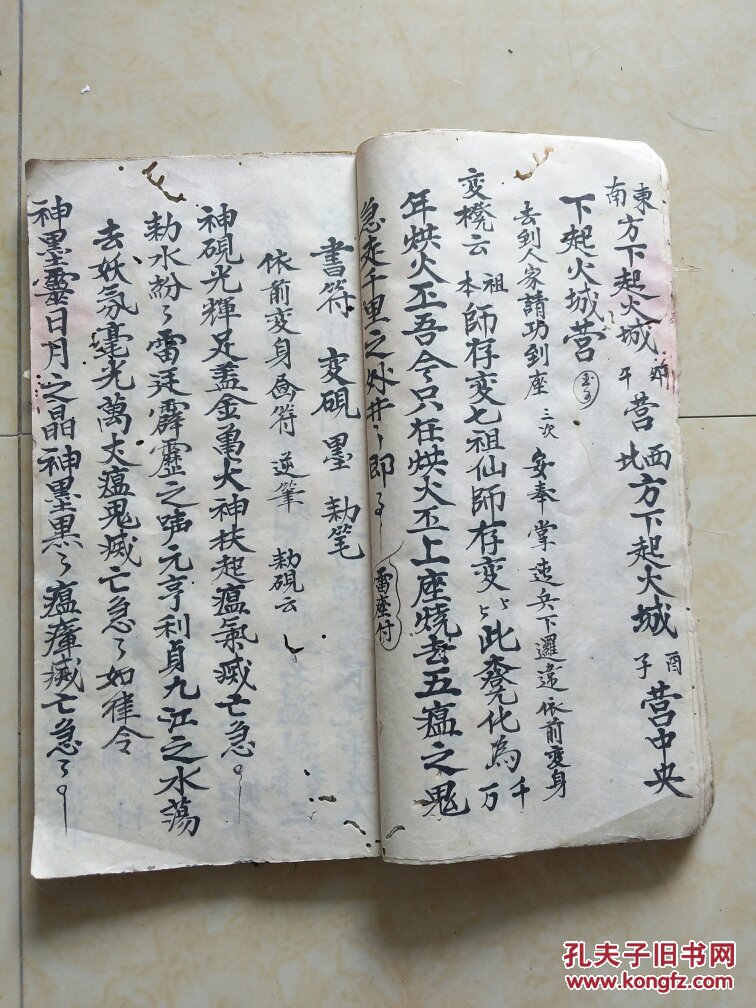 東南方下起火城卯午营西北方下起火城酉子营中央
下起火城营
去到人家請功到座三次安奉掌造兵下邏遠依前变身
变櫈云祖本師存变七祖仙師存变此櫈化為千万
年烘火丕吾今只在烘火丕上座燒去五瘟之鬼
急走千里之外井々即
雷座付
書符变硯墨勅笔
依前变身画符逆筆勅硯云
神硯光輝足盖金亀火神扶起瘟氣滅亡急
勅水紛々雷廷霹靂之㖂元亨利貞九江之水蕩
去妖氛毫光萬丈瘟鬼滅亡急々如律令
神墨靈日月之晶神墨黑々瘟瘴滅亡急々
孔夫子旧书网
www.kongfz.com